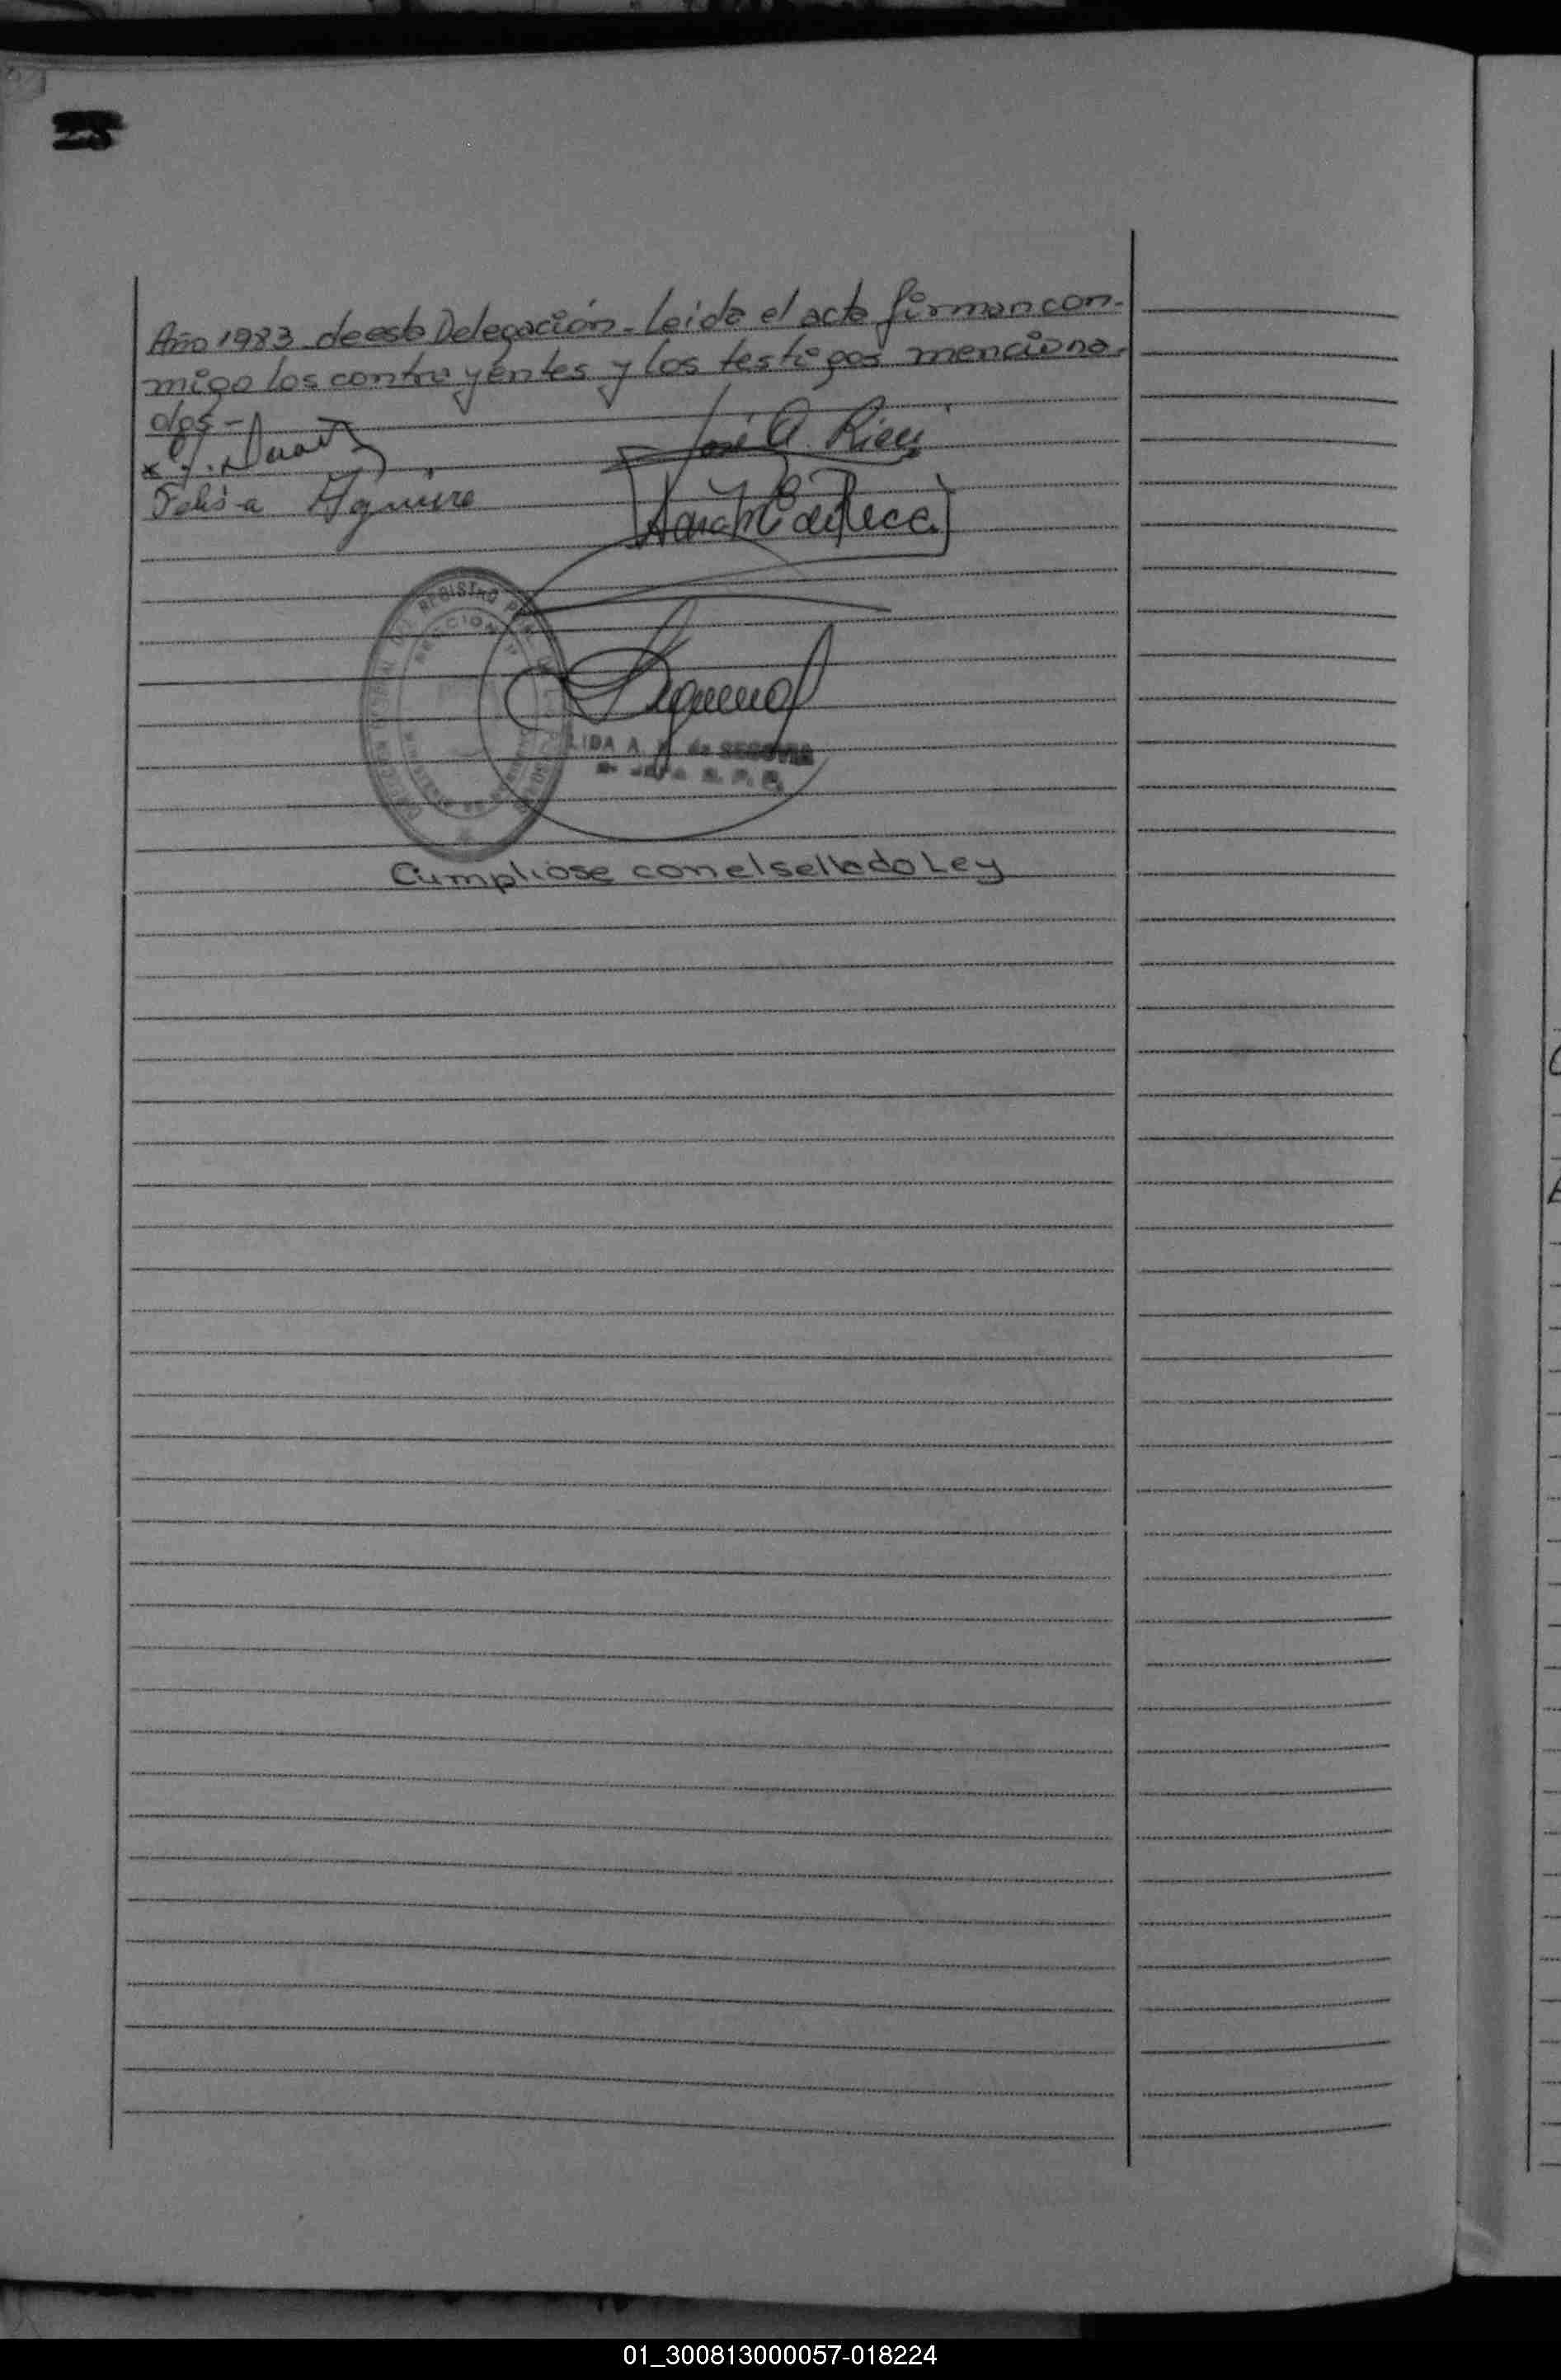 25
Año 1983 de esta Delegación - Leída el acta firman con-
migo los contrayentes y los testigos menciona-
dos -
José A.
Felisa Aguirre
REGISTRO
SECCION
LIDA A. de SEGOVIA
Cumpliose con el sellado Ley
01_300813000057-018224